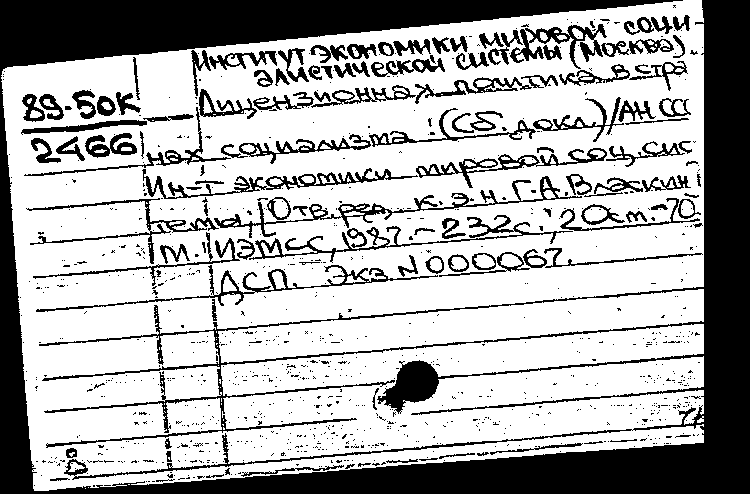 Институт экономики мировой соци-
алистической системы (Москва).
89-50к
2466
Лицензионная политика в стра
нах социализма : (Сб. докл.) / АН ССС
Ин-т экономики мировой соц. сис
темы; [Отв. ред. к.э.н. Г.А. Власкин
М. : ИЭМСС, 1987. - 232с.; 20см. - 70
ДСП. Экз. N000067.